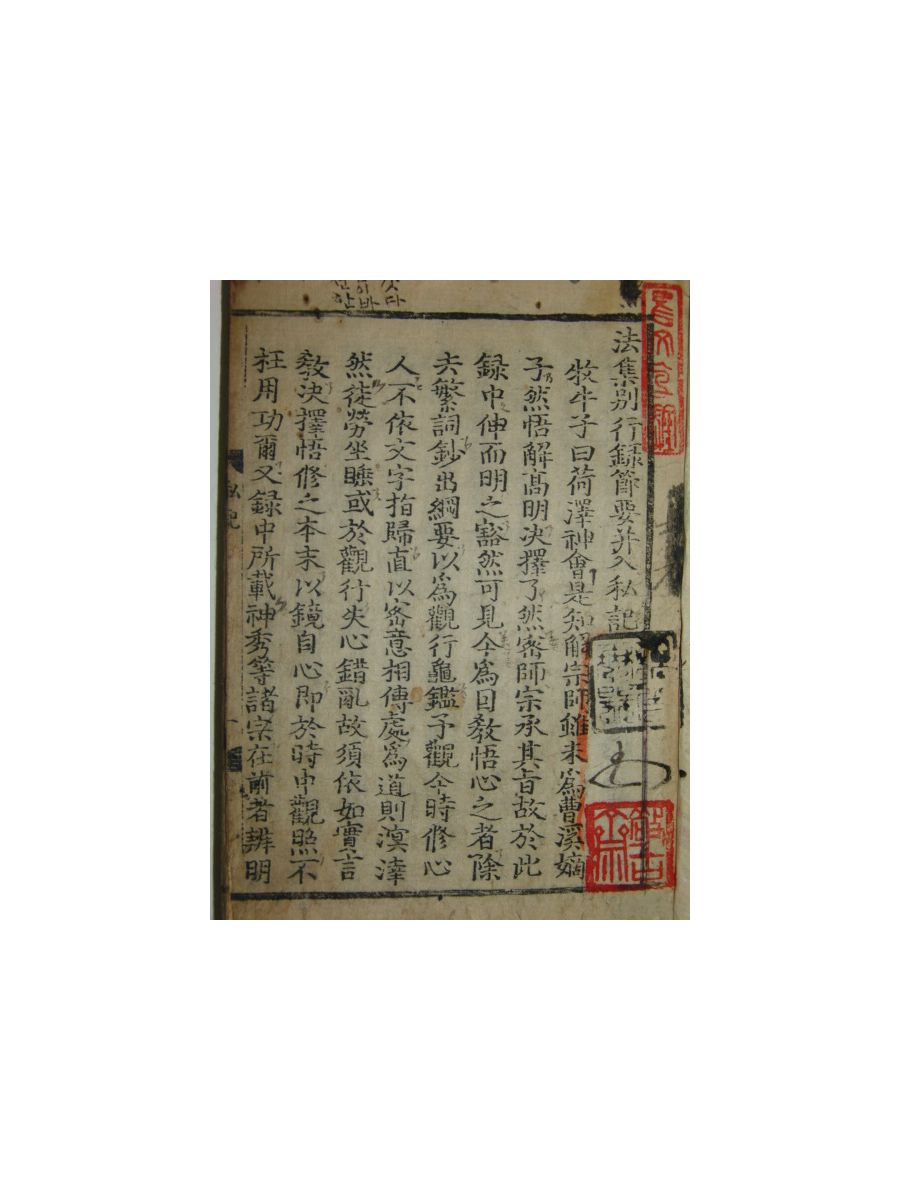 法集別行録節要并入私記
牧牛子曰荷澤神會是知解宗師雖未爲曹溪嫡
子然悟解髙明決擇了然密師宗承其旨故於此
録中伸而明之豁然可見今爲因敎悟心之者除
去繁詞鈔出綱要以爲觀行龜鑑予觀今時修心
人不依文字指歸直以密意相傳處爲道則溟涬
然徒勞坐睡或於觀行失心錯亂故須依如實言
敎決擇悟修之本末以鏡自心即於時中觀照不
枉用功爾又録中所載神秀等諸宗在前者辨明
私記